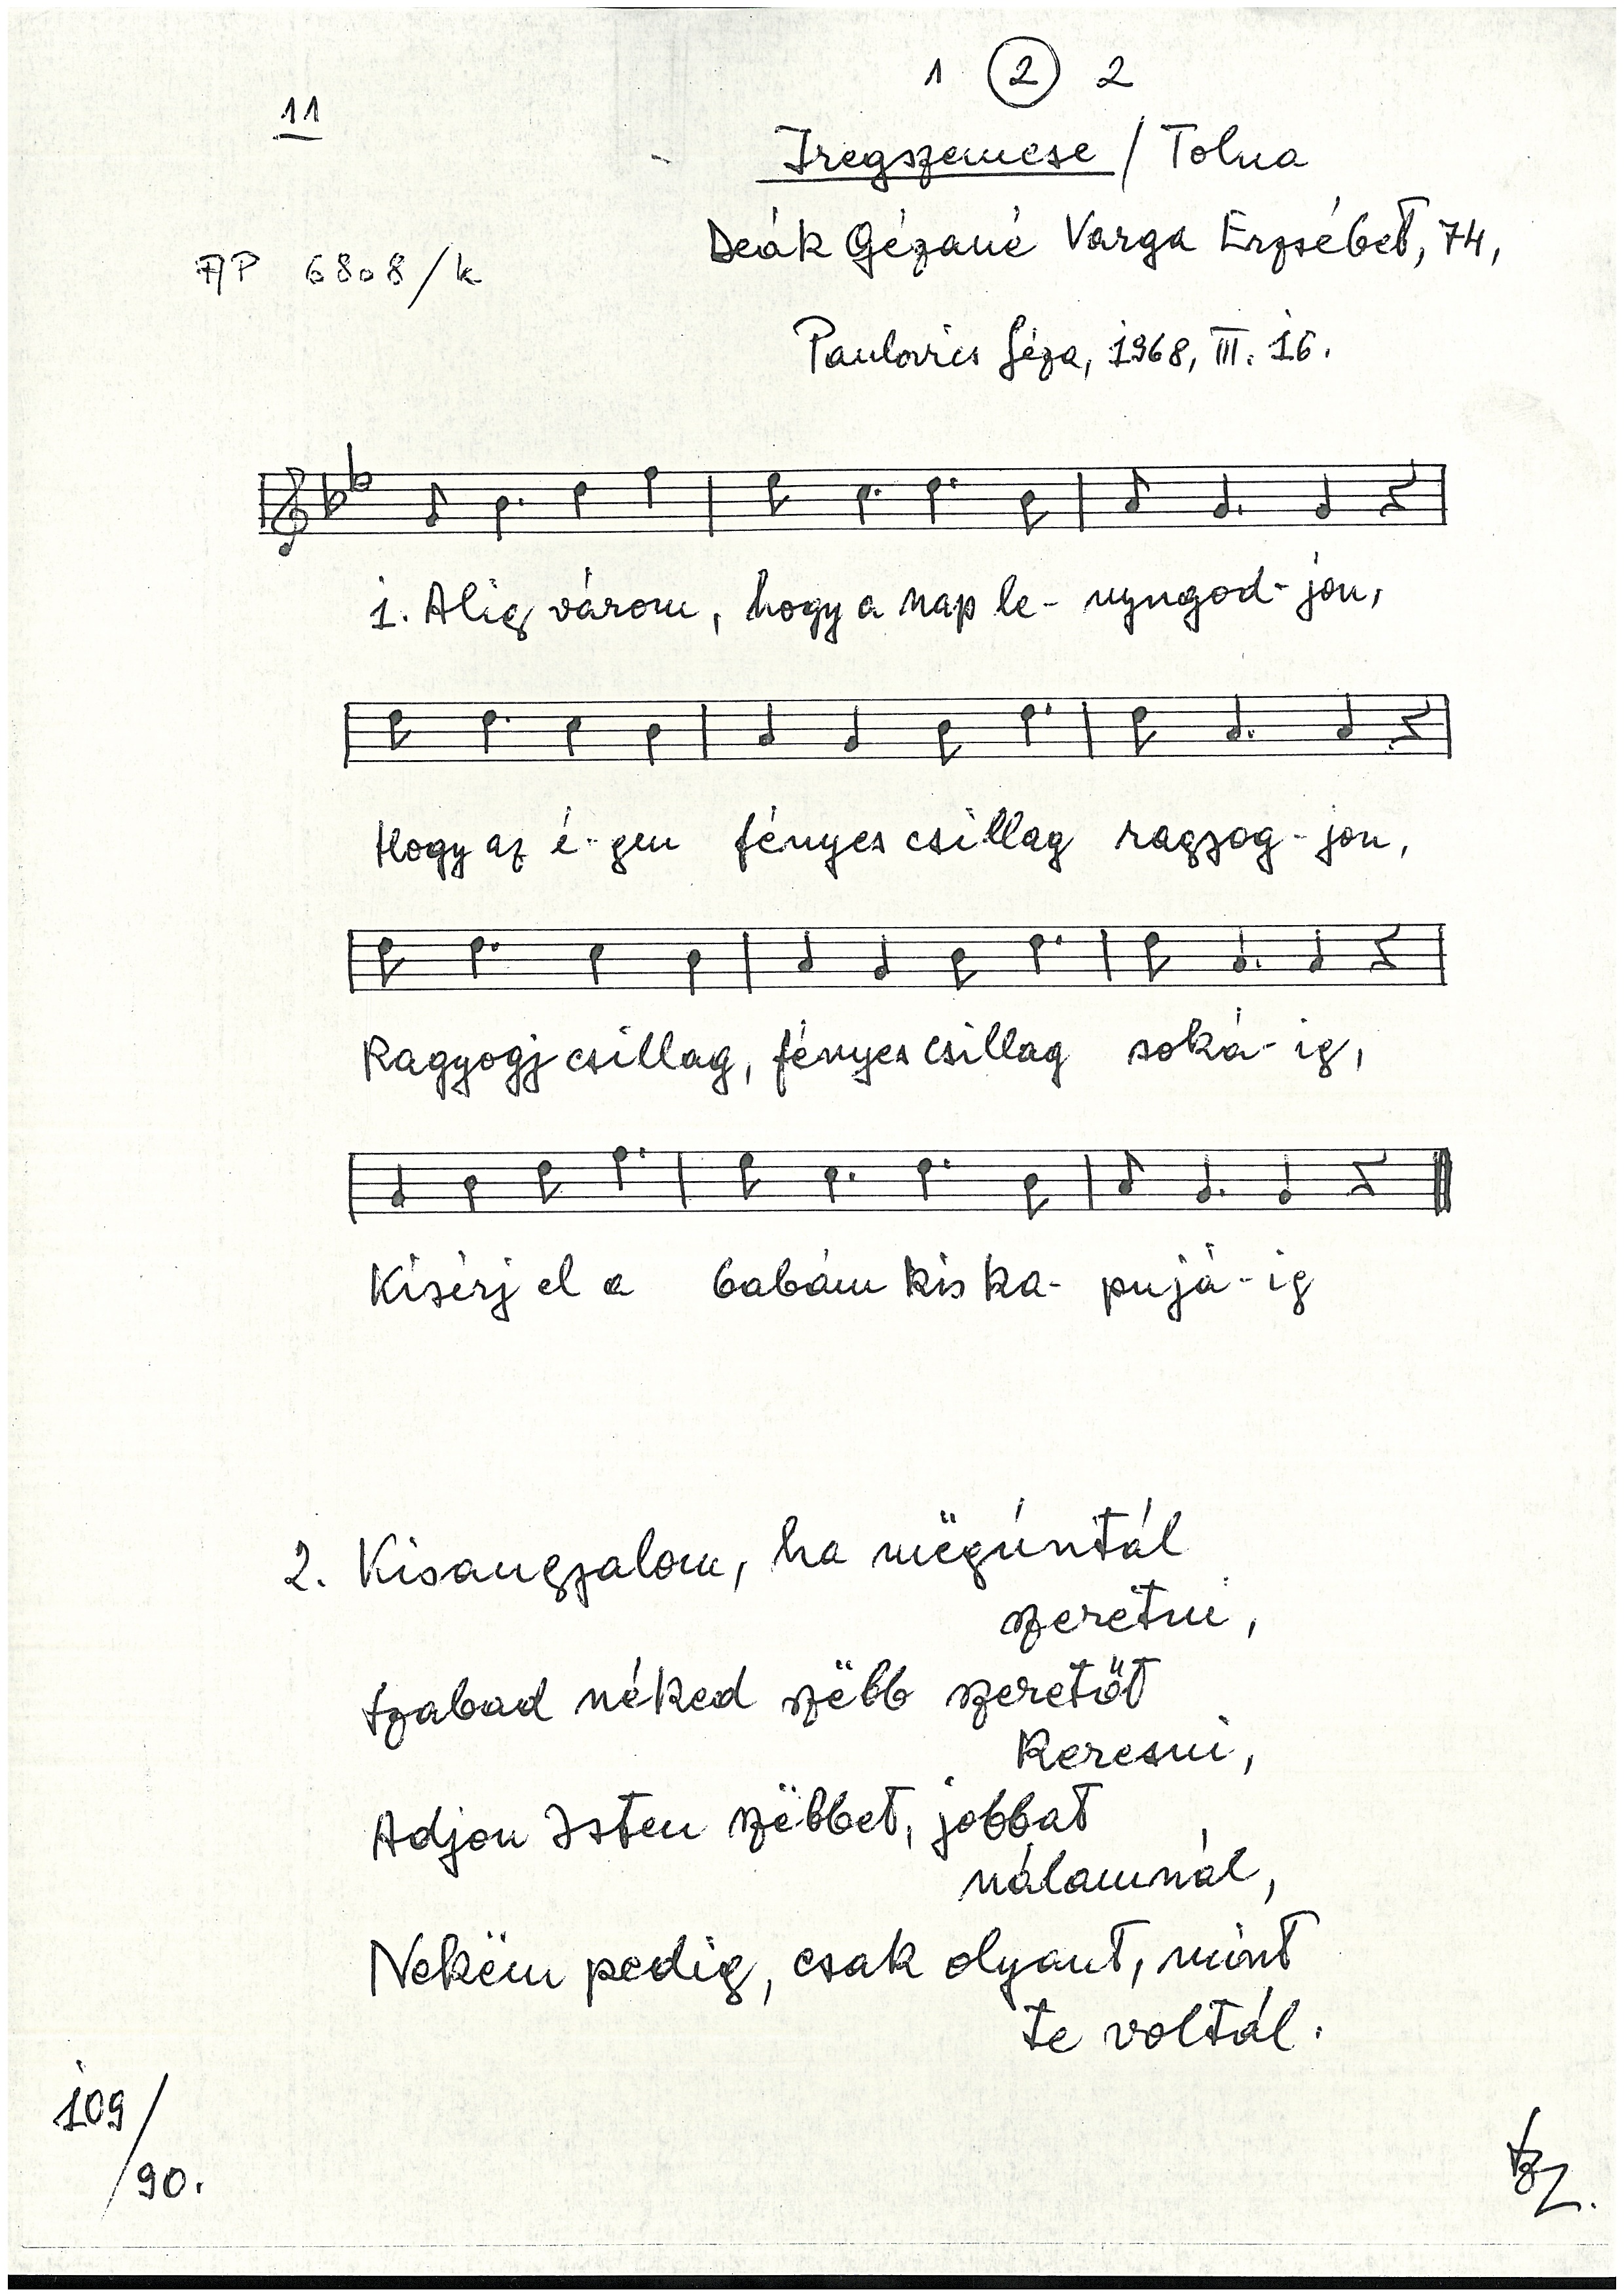 1 2 2
11
Iregszemcse / Tolna
Deák Gézáné Varga Erzsébet, 74,
AP 6808/k
Paulovics Géza, 1968, III. 16.
1. Alig várom, hogy a nap le- nyugod- jon,
Hogy az é- gen fényes csillag ragyog- jon,
Ragyogj csillag, fényes csillag soká- ig,
Kisérj el a babám kis ka- pujá- ig
2. Kisangyalom, ha mëgúntál
szeretni,
Szabad néked szëbb szeretőt
keresni,
Adjon Isten szëbbet, jobbat
nálamnál,
Nekëm pedig, csak olyant, mint
te voltál.
109/90.